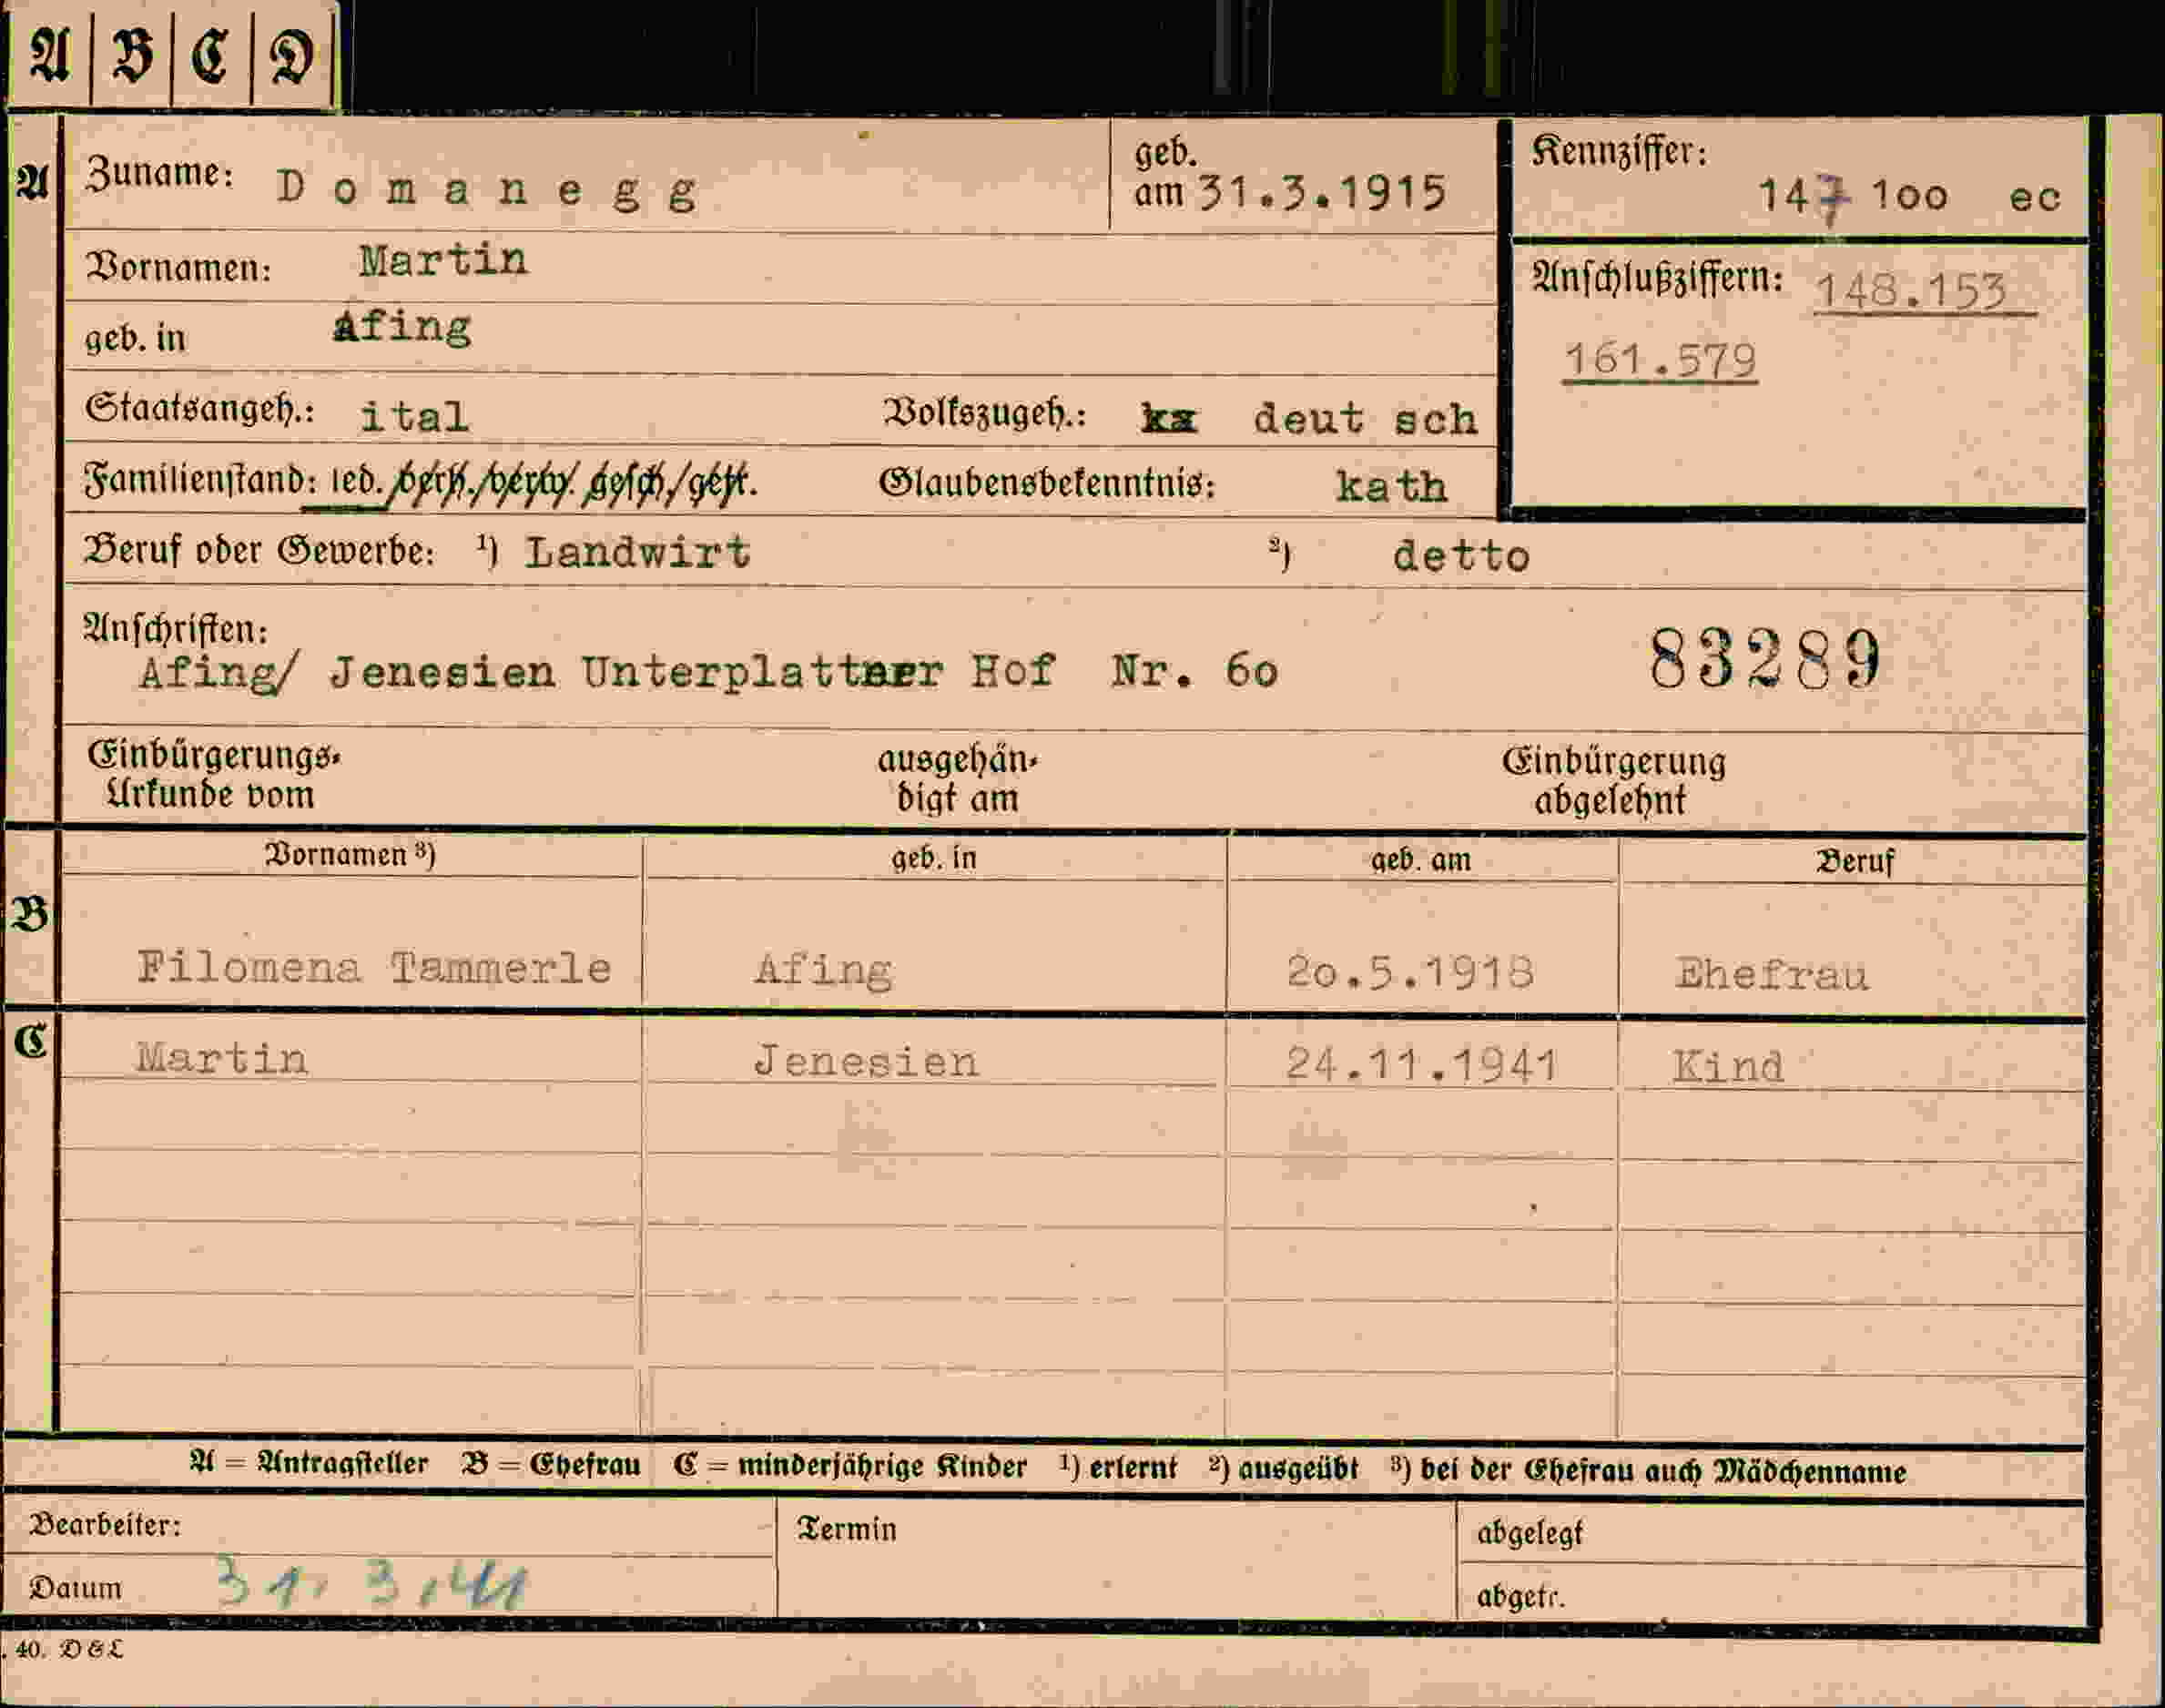 A B C D
A Zuname: Domanegg geb. am 31.3.1915 Kennziffer: 147 100 ec
Vornamen: Martin
Anschlußziffern: 148.153
geb. in Afing
161.579
Staatsangeh.: ital Volkszugeh.: deut sch
Familienstand: led. verh./verw. gesch./getr. Glaubensbekenntnis: kath
Beruf oder Gewerbe: ¹) Landwirt ²) detto
Anschriften:
Afing/ Jenesien Unterplattner Hof Nr. 60 83289
Einbürgerungs-Urkunde vom ausgehändigt am Einbürgerung abgelehnt
Vornamen ³) geb. in geb. am Beruf
B
Filomena Tammerle Afing 20.5.1918 Ehefrau
C
Martin Jenesien 24.11.1941 Kind
A = Antragsteller B = Ehefrau C = minderjährige Kinder ¹) erlernt ²) ausgeübt ³) bei der Ehefrau auch Mädchenname
Bearbeiter: Termin abgelegt
Datum 31. 3. 41 abgetr.
. 40. D&L